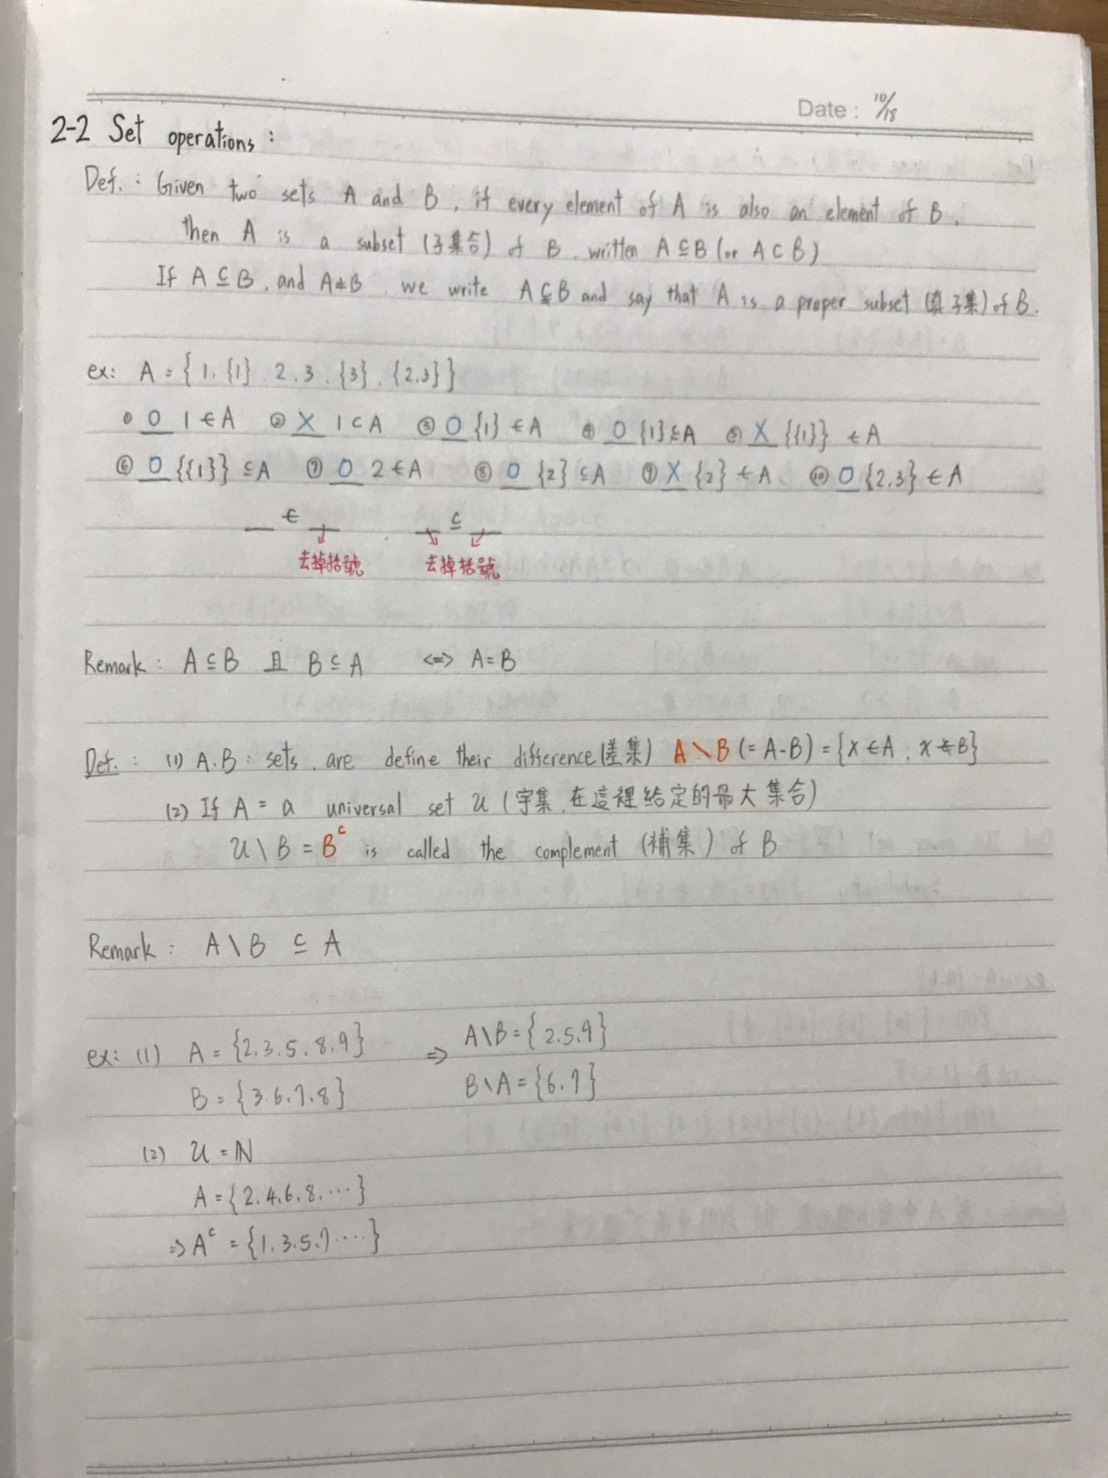 Date : 10/18
2-2 Set operations :
Def. : Given two sets A and B, if every element of A is also an element of B,
then A is a subset (子集合) of B, written A⊆B (or A⊂B)
If A⊆B, and A≠B, we write A⊊B and say that A is a proper subset (真子集) of B.
ex: A = {1, {1}, 2, 3, {3}, {2,3}}
① O 1∈A ② X 1⊂A ③ O {1}∈A ④ O {1}⊆A ⑤ X {{1}} ∈A
⑥ O {{1}} ⊆A ⑦ O 2∈A ⑧ O {2}⊆A ⑨ X {2}∈A ⑩ O {2,3}∈A
__ ∈ __ __ ⊆ __
去掉括號 去掉括號
Remark : A⊆B 且 B⊆A <=> A=B
Def. : (1) A.B : sets, are define their difference (差集) A\B (= A-B) = {x∈A, x∉B}
(2) If A = a universal set U (宇集, 在這裡給定的最大集合)
U\B = Bᶜ is called the complement (補集) of B
Remark : A\B ⊆ A
ex: (1) A = {2.3.5.8.9} => A\B = {2.5.9}
B = {3.6.7.8} B\A = {6.7}
(2) U = ℕ
A = {2.4.6.8.…}
=> Aᶜ = {1.3.5.7.…}